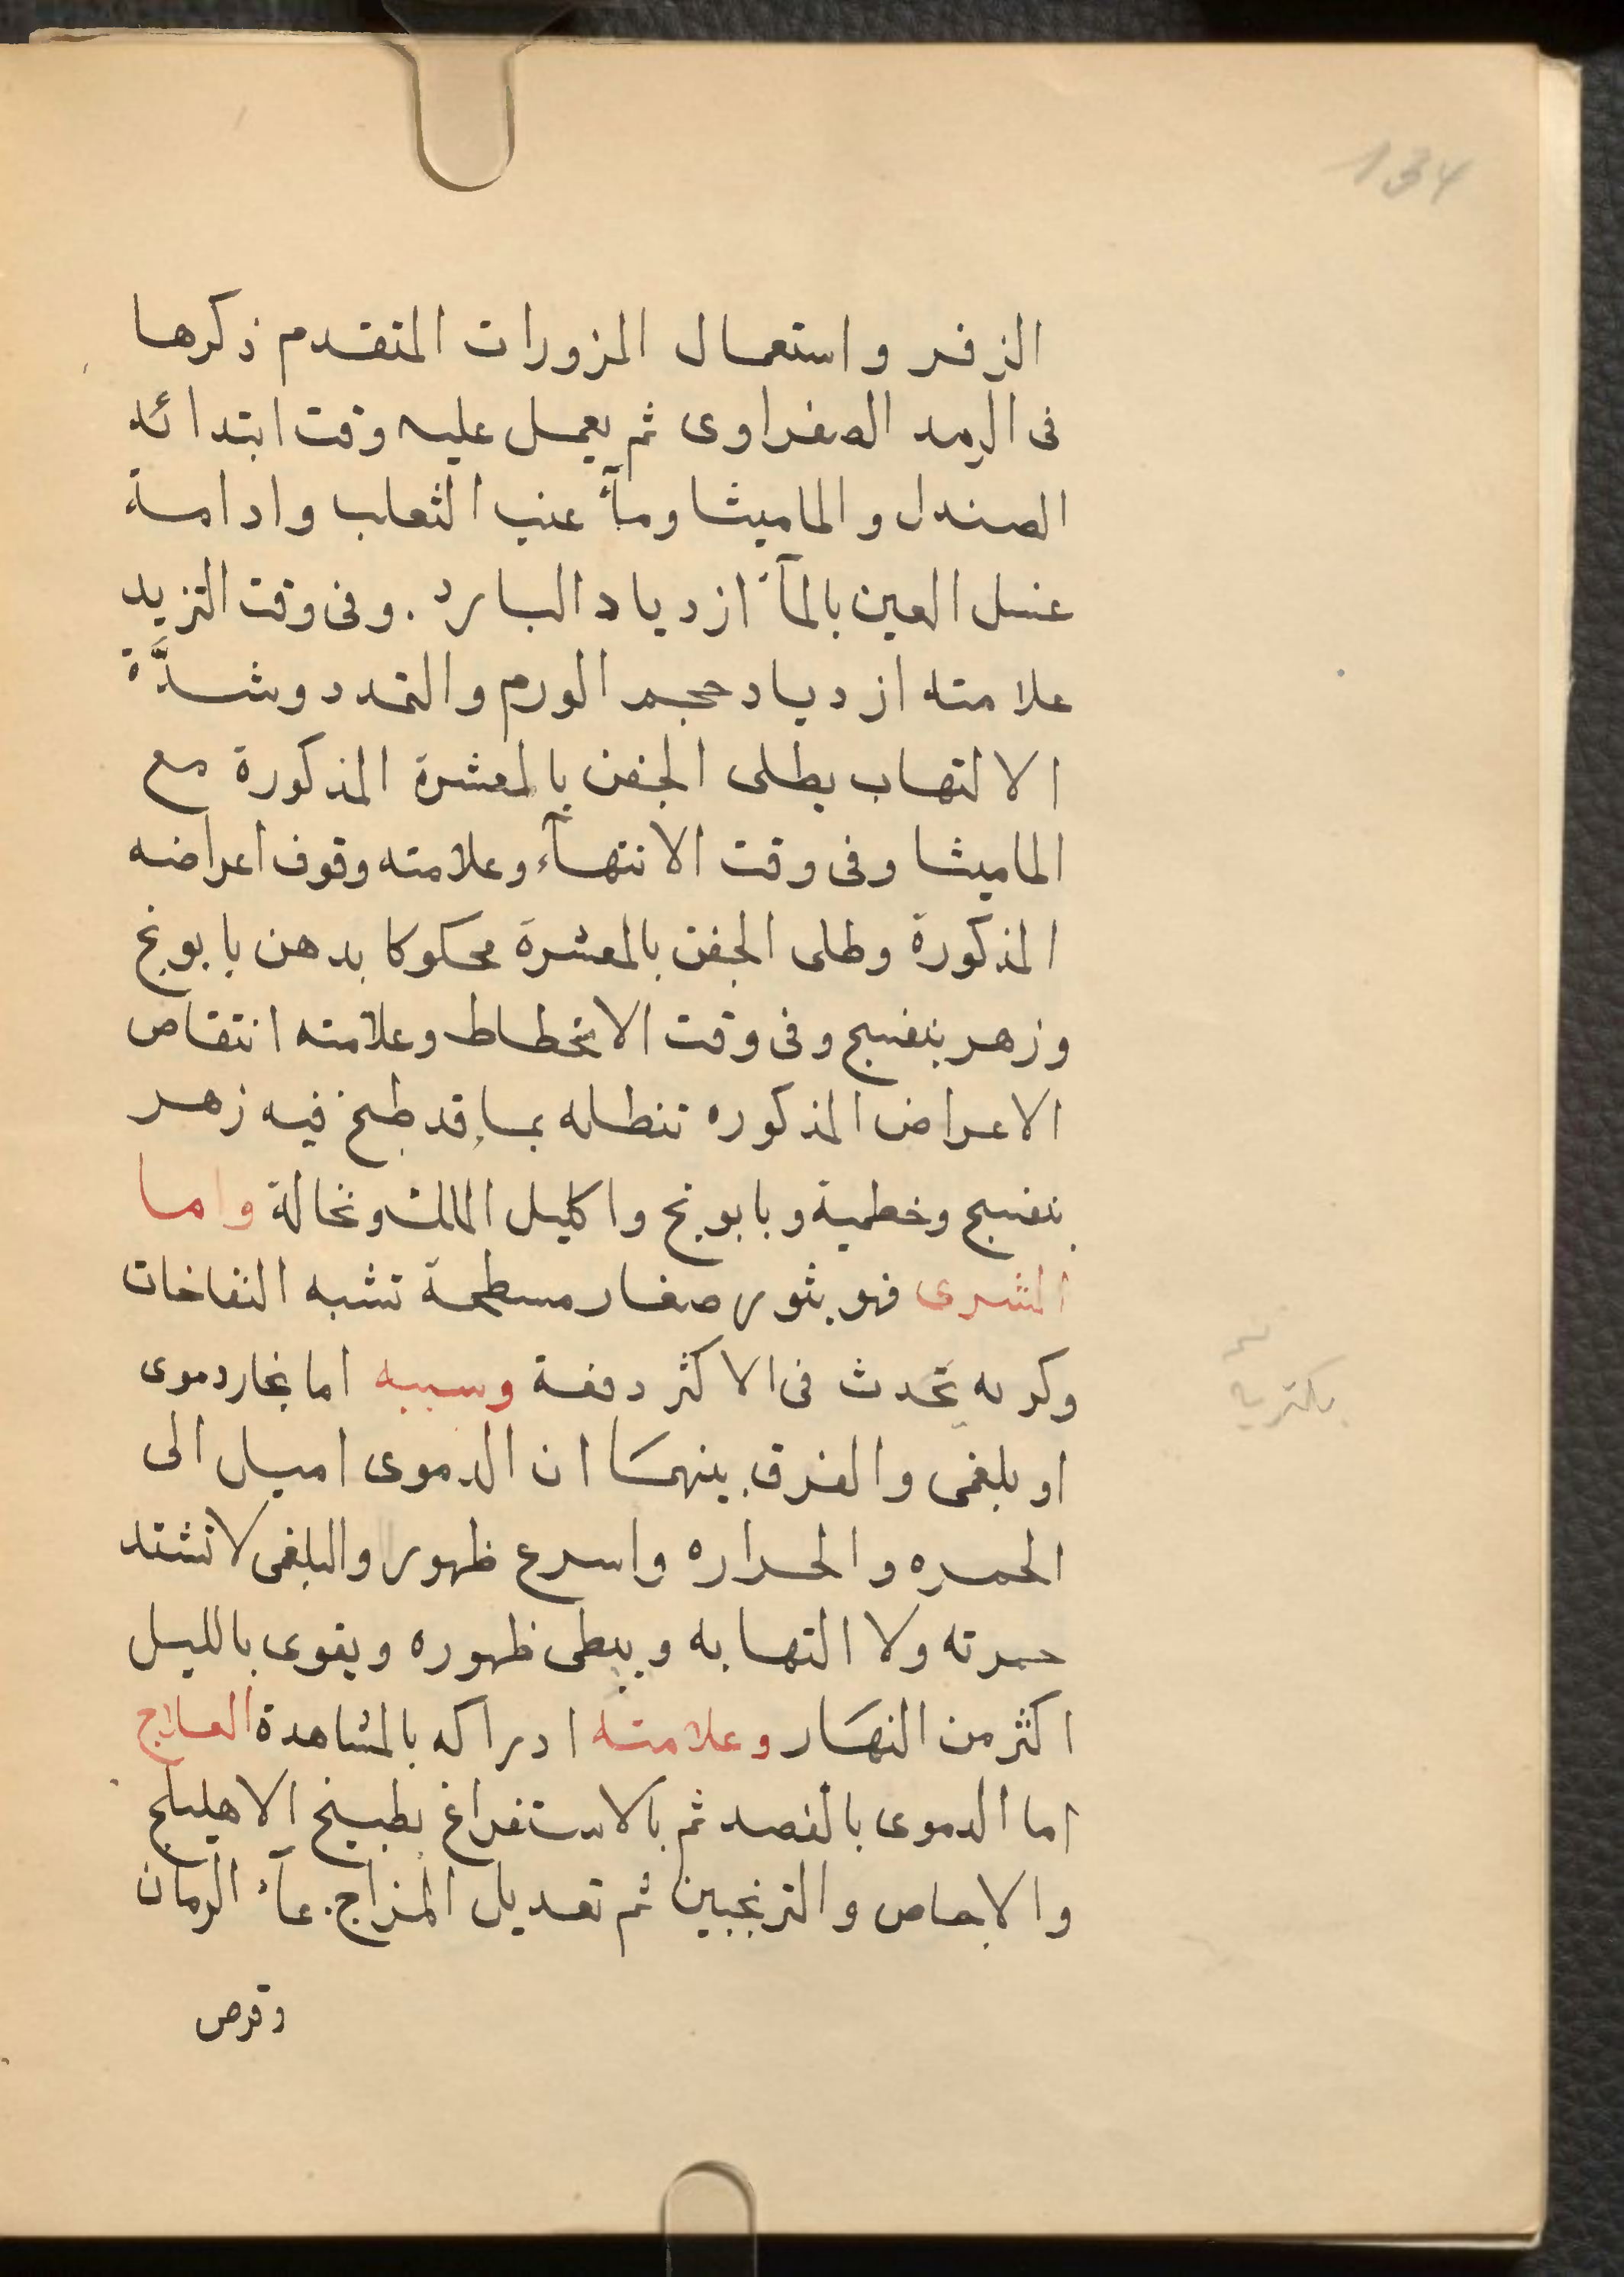 134
الزفر واستعمال المزورات المتقدم ذكرها
فى الرمد الصفراوى ثم يعمل عليه وقت ابتدائه
الصندل والماميثا ومآء عنب الثعلب وادامة
غسل العين بالمآء ازدياد البارد. وفى وقت التزيد
علامته ازدياد حجم الورم والتمدد وشدَّة
الالتهاب يطلى الجفن بالمعشرة المذكورة مع
الماميثا وفى وقت الانتهآء وعلامته وقوف اعراضه
المذكورة وطلى الجفن بالمعشرة محكوكا بدهن بابونج
وزهر بنفسج وفى وقت الانحطاط وعلامته انتقاص
الاعراض المذكوره تنطله بما قد طبخ فيه زهر
بنفسج وخطمية وبابونج واكليل الملك ونخالة واما
الشرى فهو بثور صغار مسطحة تشبه النفاخات
وكربه تحدث فى الاكثر دفعة وسببه اما بخار دموى
او بلغمى والفرق بينهما ان الدموى اميل الى
الحمره والحراره واسرع ظهورا والبلغمى لا تشتد
حمرته ولا التهابه ويبطى ظهوره ويقوى بالليل
اكثر من النهار وعلامته ادراكه بالمشاهدة العلاج
اما الدموى بالفصد ثم بالاستفراغ بطبيخ الاهليلج
والاجاص والترنجبين ثم تعديل المزاج. بمآء الرمان
وقرص